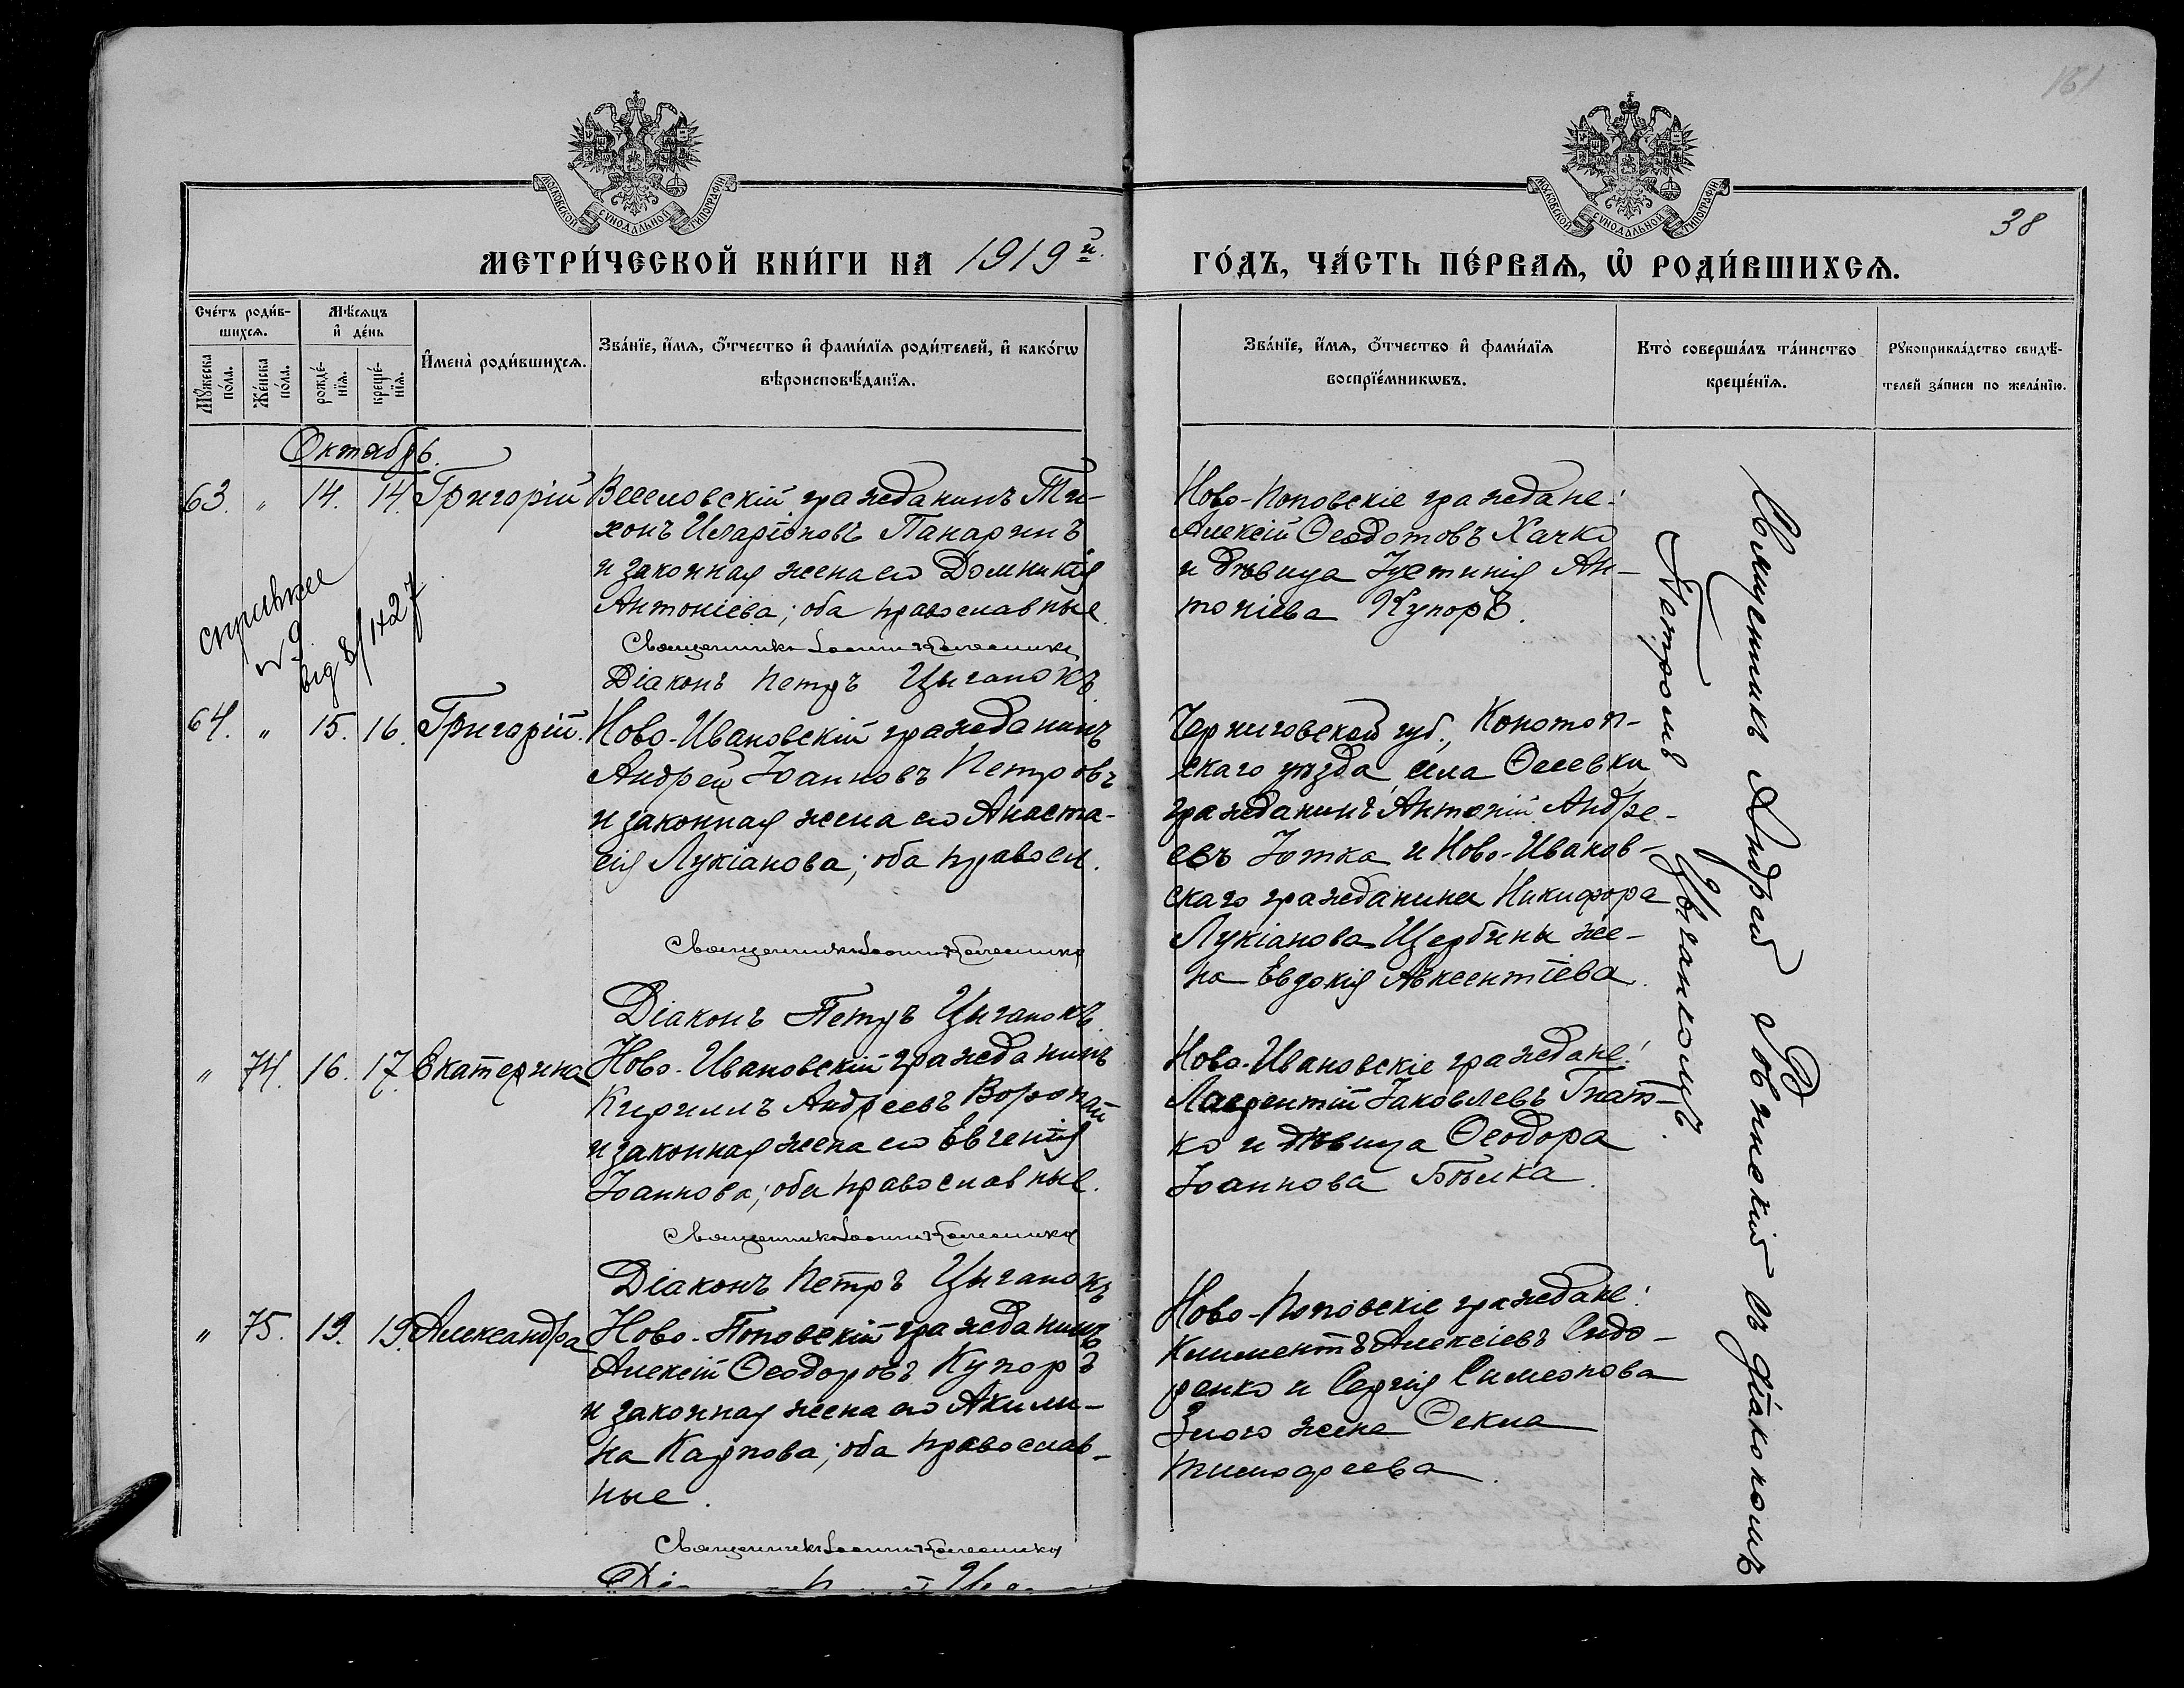 161
МОСКОВСКОЙ СѴНОДАЛЬНОЙ ТИПОГРАФІИ
МОСКОВСКОЙ СѴНОДАЛЬНОЙ ТИПОГРАФІИ
38
МЕТРИ́ЧЕСКОЙ КНИ́ГИ НА 1919й.
ГО́ДЪ, ЧА́СТЬ ПЕ́РВАѦ, Ѿ РОДИ́ВШИХСѦ.
Сче́тъ роди́в-
шихсѧ.
Мꙋ́жеска
по́ла.
Же́нска
по́ла.
Мѣ́сѧцъ
и҆ де́нь
рожде́-
нїѧ.
креще́-
нїѧ.
И҆мена̀ роди́вшихсѧ.
Зва́нїе, и҆́мѧ, ѻ҆́тчество и҆ фами́лїѧ роди́телей, и҆ како́гѡ
вѣроисповѣ́данїѧ.
Зва́нїе, и҆́мѧ, ѻ҆́тчество и҆ фами́лїѧ
воспрїе́мникѡвъ.
Кто̀ соверша́лъ та́инство
креще́нїѧ.
Рꙋкоприкла́дство свидѣ́-
телей за́писи по жела́нїю.
Октябрь.
63. " 14. 14. Григорій
Веселовскій гражданинъ Ти-
хонъ Иларіоновъ Панаринъ
и законная жена его Домникія
Антоніева; оба православные
Діаконъ Петръ Цыганокъ
Ново-Поповскіе граждане:
Алексій Ѳеодотовъ Хачко
и дѣвица Іустинія Ан-
тоніева Купоръ.
справка
№ 9
від 8/ІІ 27
64. " 15. 16. Григорій.
Ново-Ивановскій гражданинъ
Андрей Іоанновъ Петровъ
и законная жена его Анаста-
сія Лукіанова; оба правосл.
Діаконъ Петръ Цыганокъ
Черниговской губ., Конотоп-
скаго уѣзда, села Ѳесевки
гражданинъ Антоній Андре-
евъ Іотка и Ново-Иванов-
скаго гражданина Никифора
Лукіанова Щербины же-
на Евдокія Авксентіева.
" 74. 16. 17. Екатерина
Ново-Ивановскій гражданинъ
Кириллъ Андреевъ Воропай
и законная жена его Евгенія
Іоаннова; оба православные.
Діаконъ Петръ Цыганокъ
Ново-Ивановскіе граждане:
Лаврентій Іаковлевъ Гнат-
ко и дѣвица Ѳеодора
Іоаннова Бѣлка.
" 75. 19. 19. Александра
Ново-Поповскій гражданинъ
Алексій Ѳеодоровъ Купоръ
и законная жена его Акили-
на Карпова; оба православ-
ные.
Ново-Поповскіе граждане:
Климентъ Алексіевъ Сидо-
ренко и Сергія Симеонова
Злого жена Ѳекла
Тимофеева.
Священникъ Андрей съ діакономъ
Петромъ Цыганкомъ.